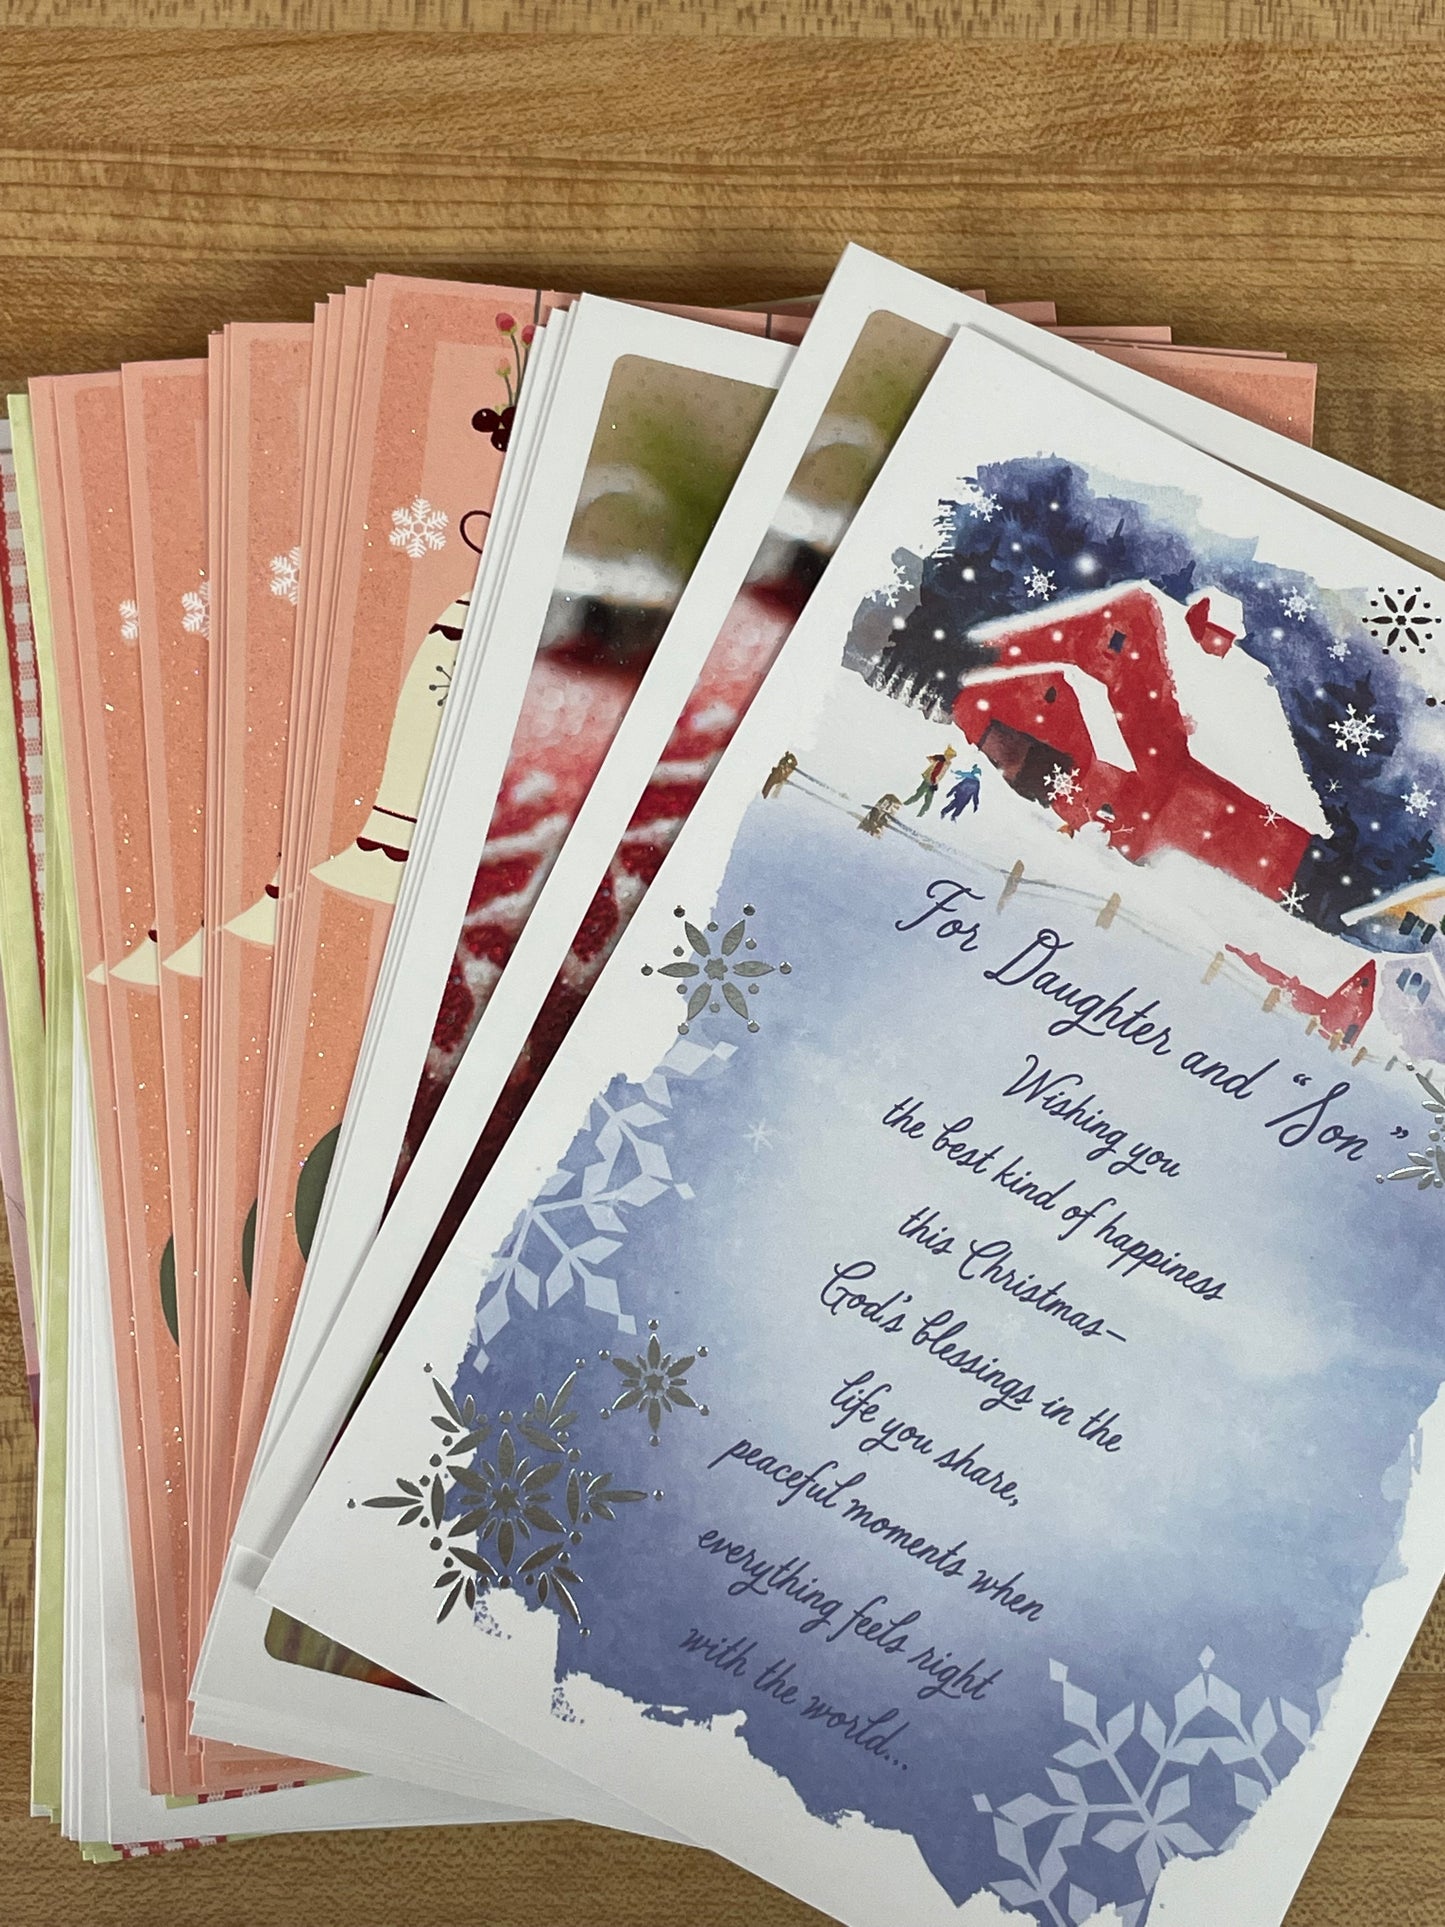 For Daughter and “Son”
Wishing you
the best kind of happiness
this Christmas—
God's blessings in the
life you share,
peaceful moments when
everything feels right
with the world...